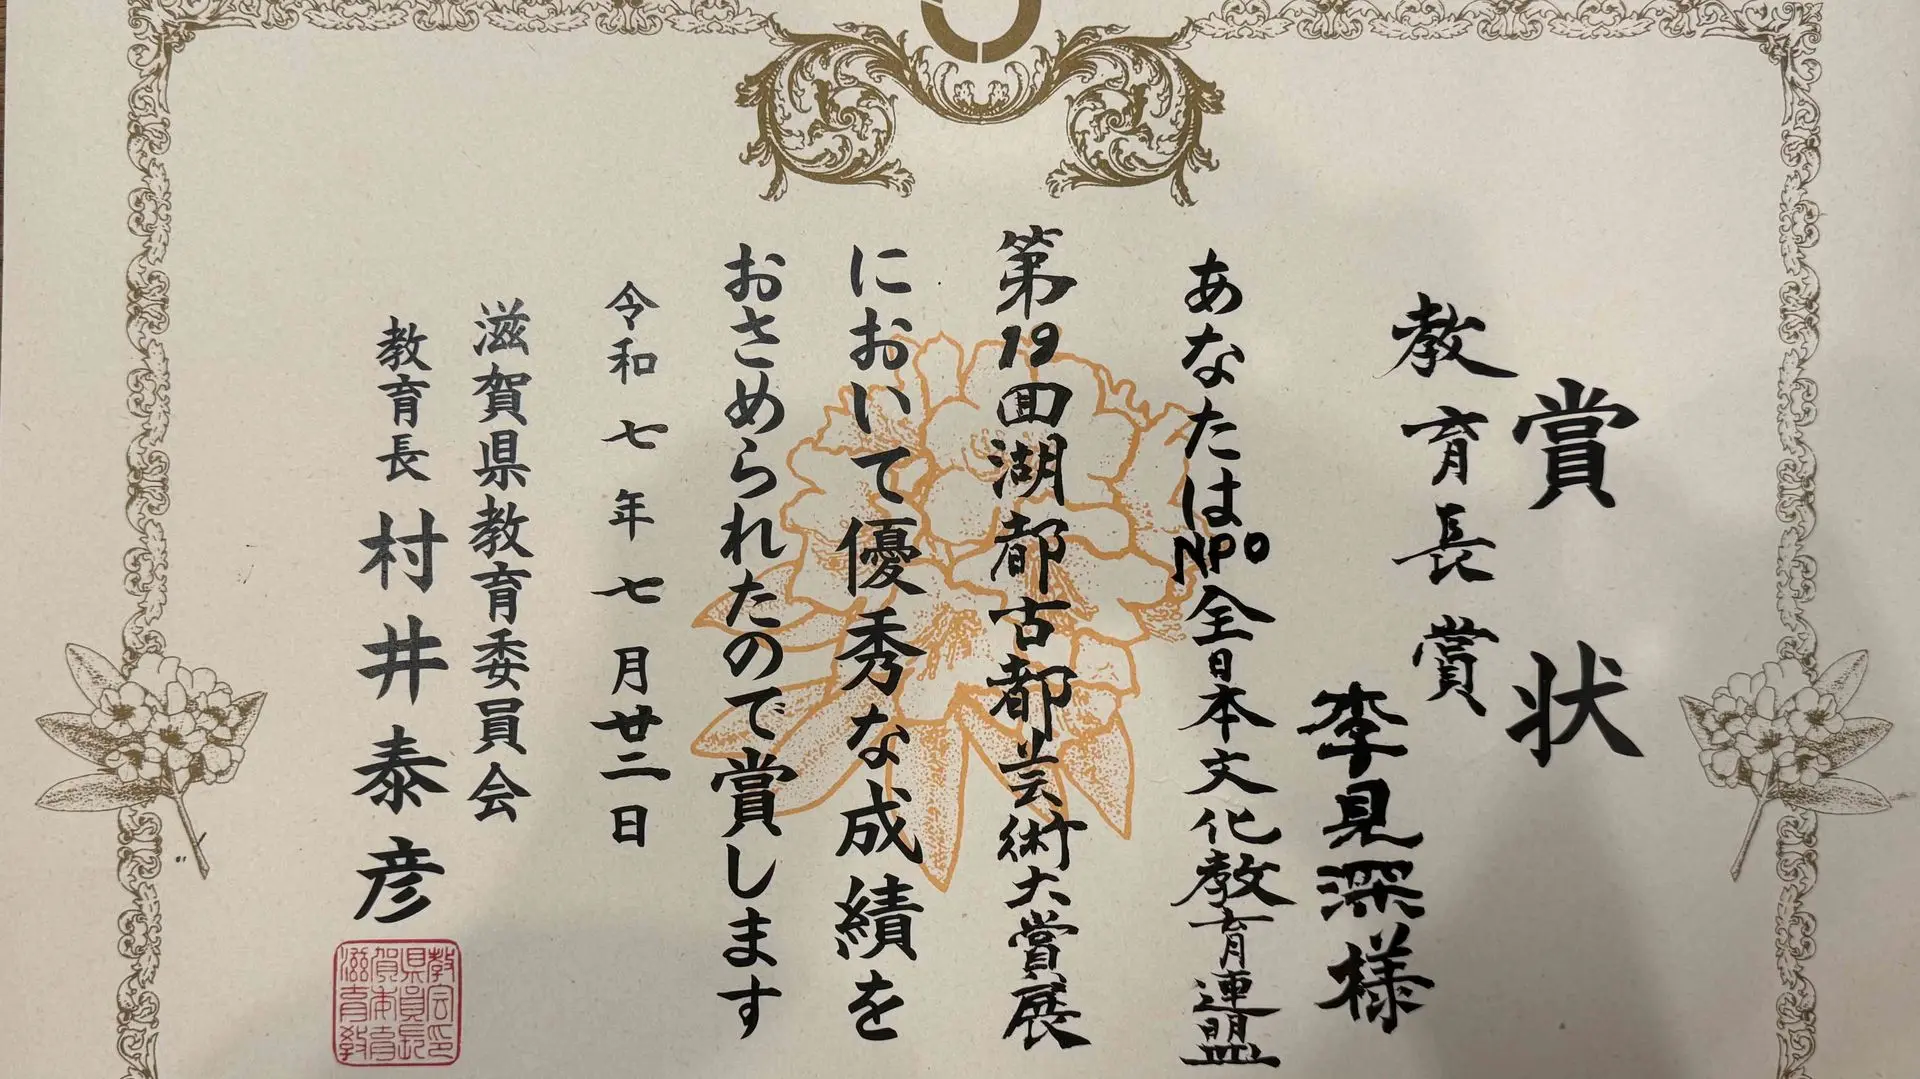 賞状
教育長賞
李見深様
あなたはNPO全日本文化教育連盟
第19回湖都古都芸術大賞展
において優秀な成績を
おさめられたので賞します
令和七年七月廿二日
滋賀県教育委員会
教育長 村井泰彦